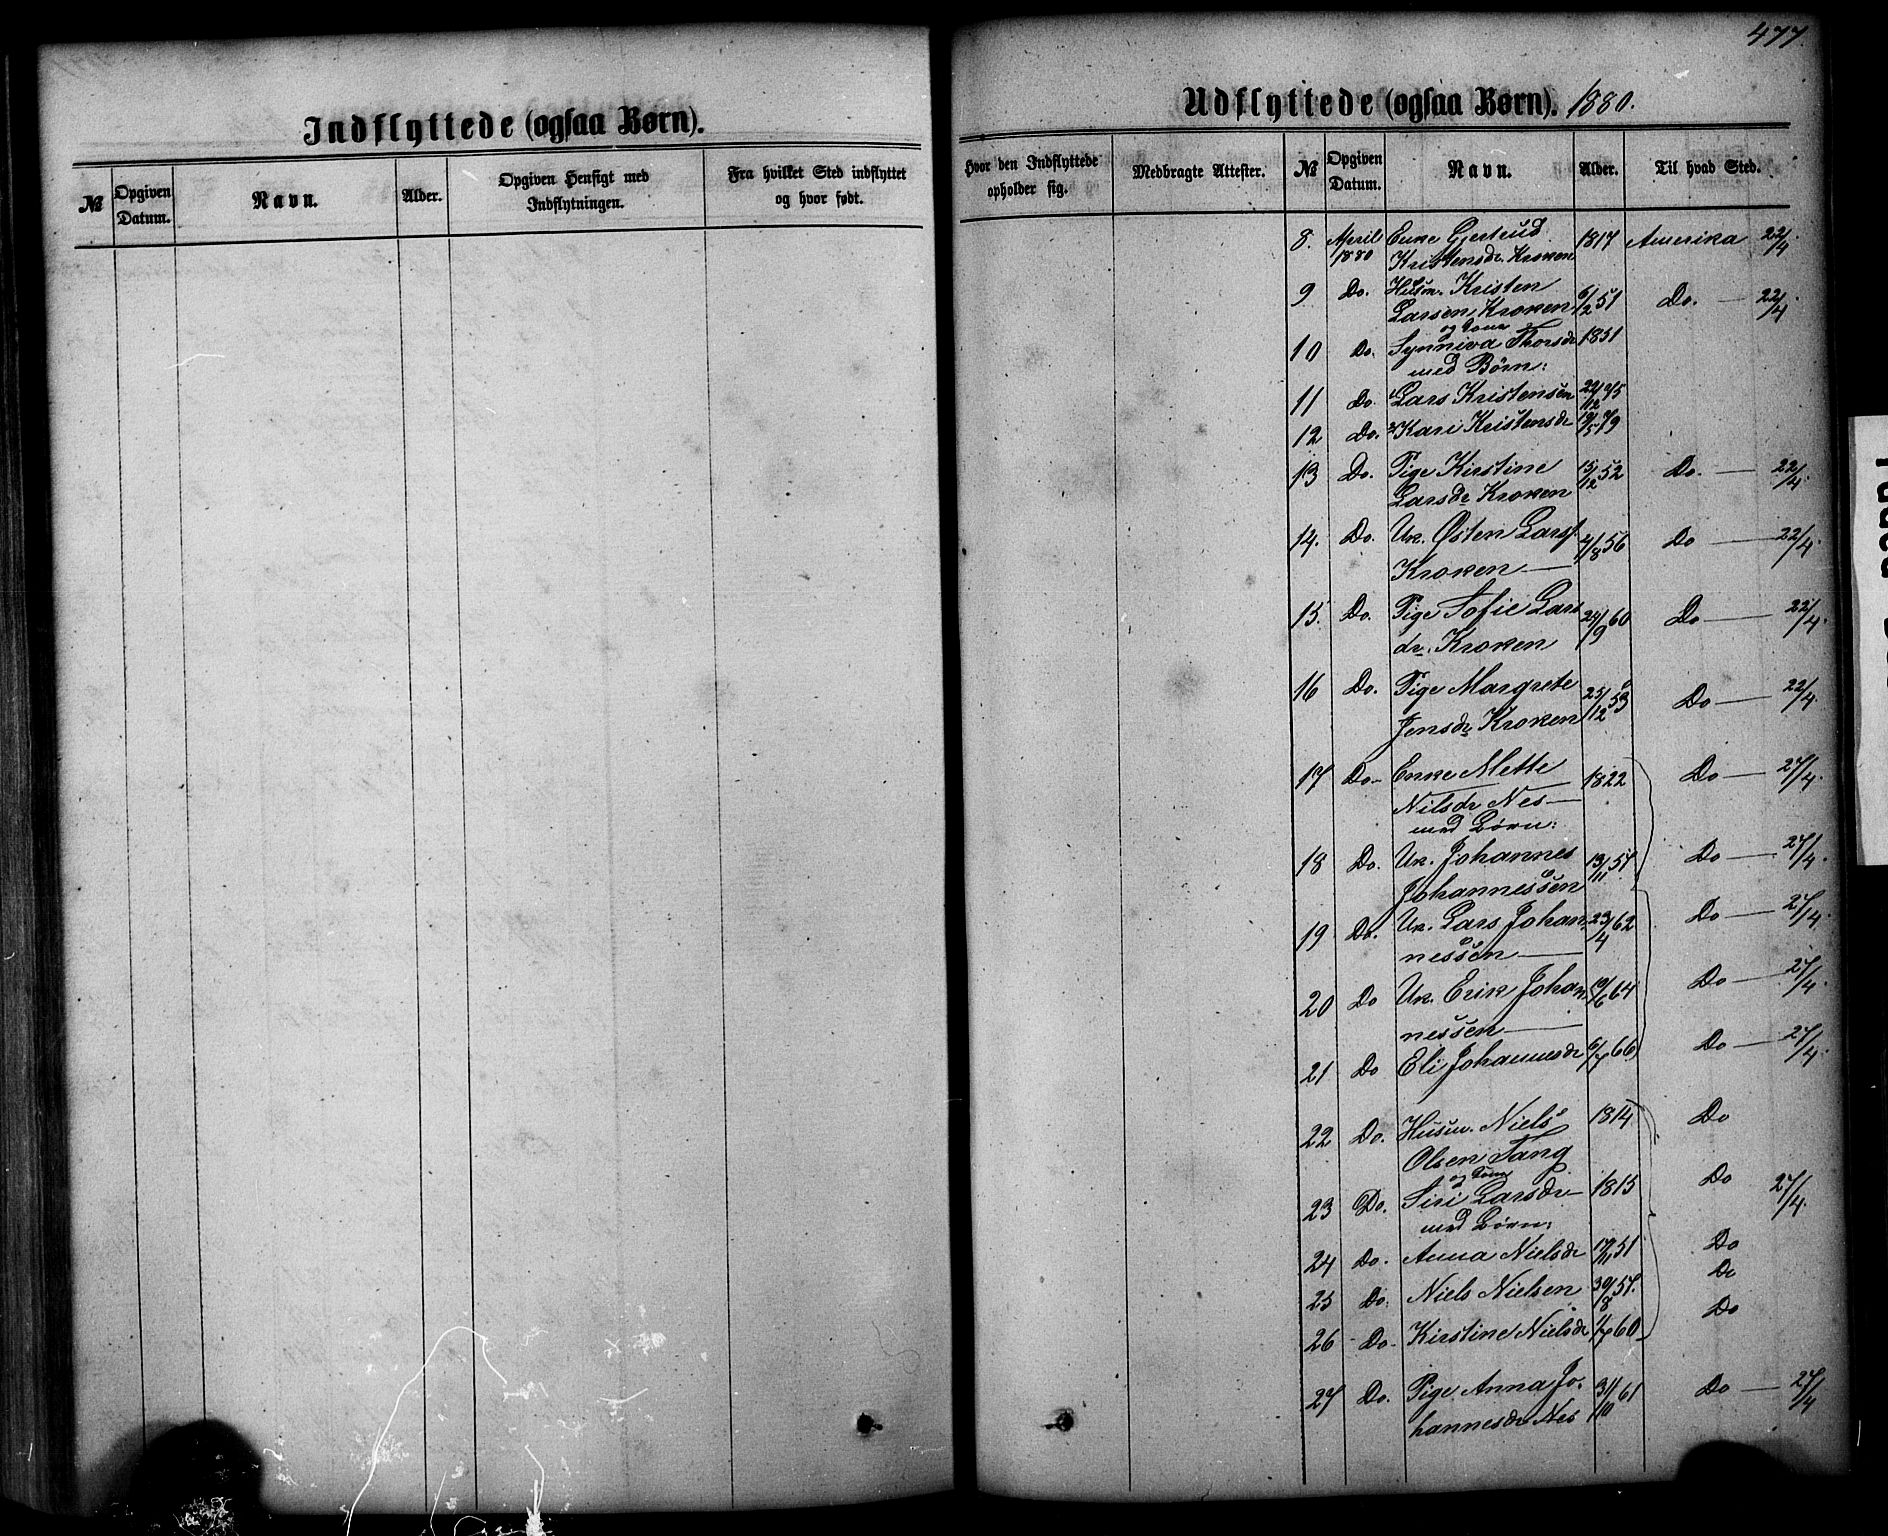 477.
Indflyttede (ogsaa Børn).
№
Opgiven Datum.
Navn.
Alder.
Opgiven Hensigt med Indflytningen.
Fra hvilket Sted indflyttet og hvor født.
Udflyttede (ogsaa Børn). 1880.
Hvor den Indflyttede opholder sig.
Medbragte Attester.
№
Opgiven Datum.
Navn.
Alder.
Til hvad Sted.
8. April Enke Gjertrud 1817 Amerika 22/4.
1880 Kristensdr. Kroken
9 Do. Husm. Kristen
Larsen Kroken 6/2 51 Do. — 22/4.
og Kone
10 Do. Synniva Thorsdr 1851
med Børn:
11 Do. Lars Kristensen 22/12 75
12 Do. Kari Kristensdr 19/5 79
13 Do. Pige Kirstine 15/12 52 Do. — 22/4.
Larsdr Kroken
14. Do. Uk. Østen Larss. 4/8 56 Do — 22/4.
Kroken —
15. Do. Pige Sofie Lars 24/9 60 Do — 22/4.
dr. Kroken
16 Do. Pige Margrete 25/12 53 Do — 22/4.
Jensdr Kroken
17 Do- Enke Mette 1822 Do — 27/4.
Nilsdr Nes —
med Børn:
18 Do. Uk. Johannes 13/11 57 Do — 27/4.
Johannessen
19 Do. Uk. Lars Johan 23/4 62 Do — 27/4.
nessen —
20 Do Uk. Erik Johan 19/6 64 Do — 27/4.
nessen —
21 Do Eli Johannesdr 6/7 66 Do — 27/4.
22 Do. Husm. Niels 1814 Do
Olsen Tang
og Kone
23 Do. Siri Larsdr 1815 Do 27/4.
med Børn:
24 Do. Anna Nielsdr 17/11 51 Do
25 Do. Niels Nielsen 30/8 57. Do
26 Do- Kirstine Nielsdr 60 Do
27 Do. Pige Anna Jo- 31/10 61 Do — 27/4
hannesdr Nes